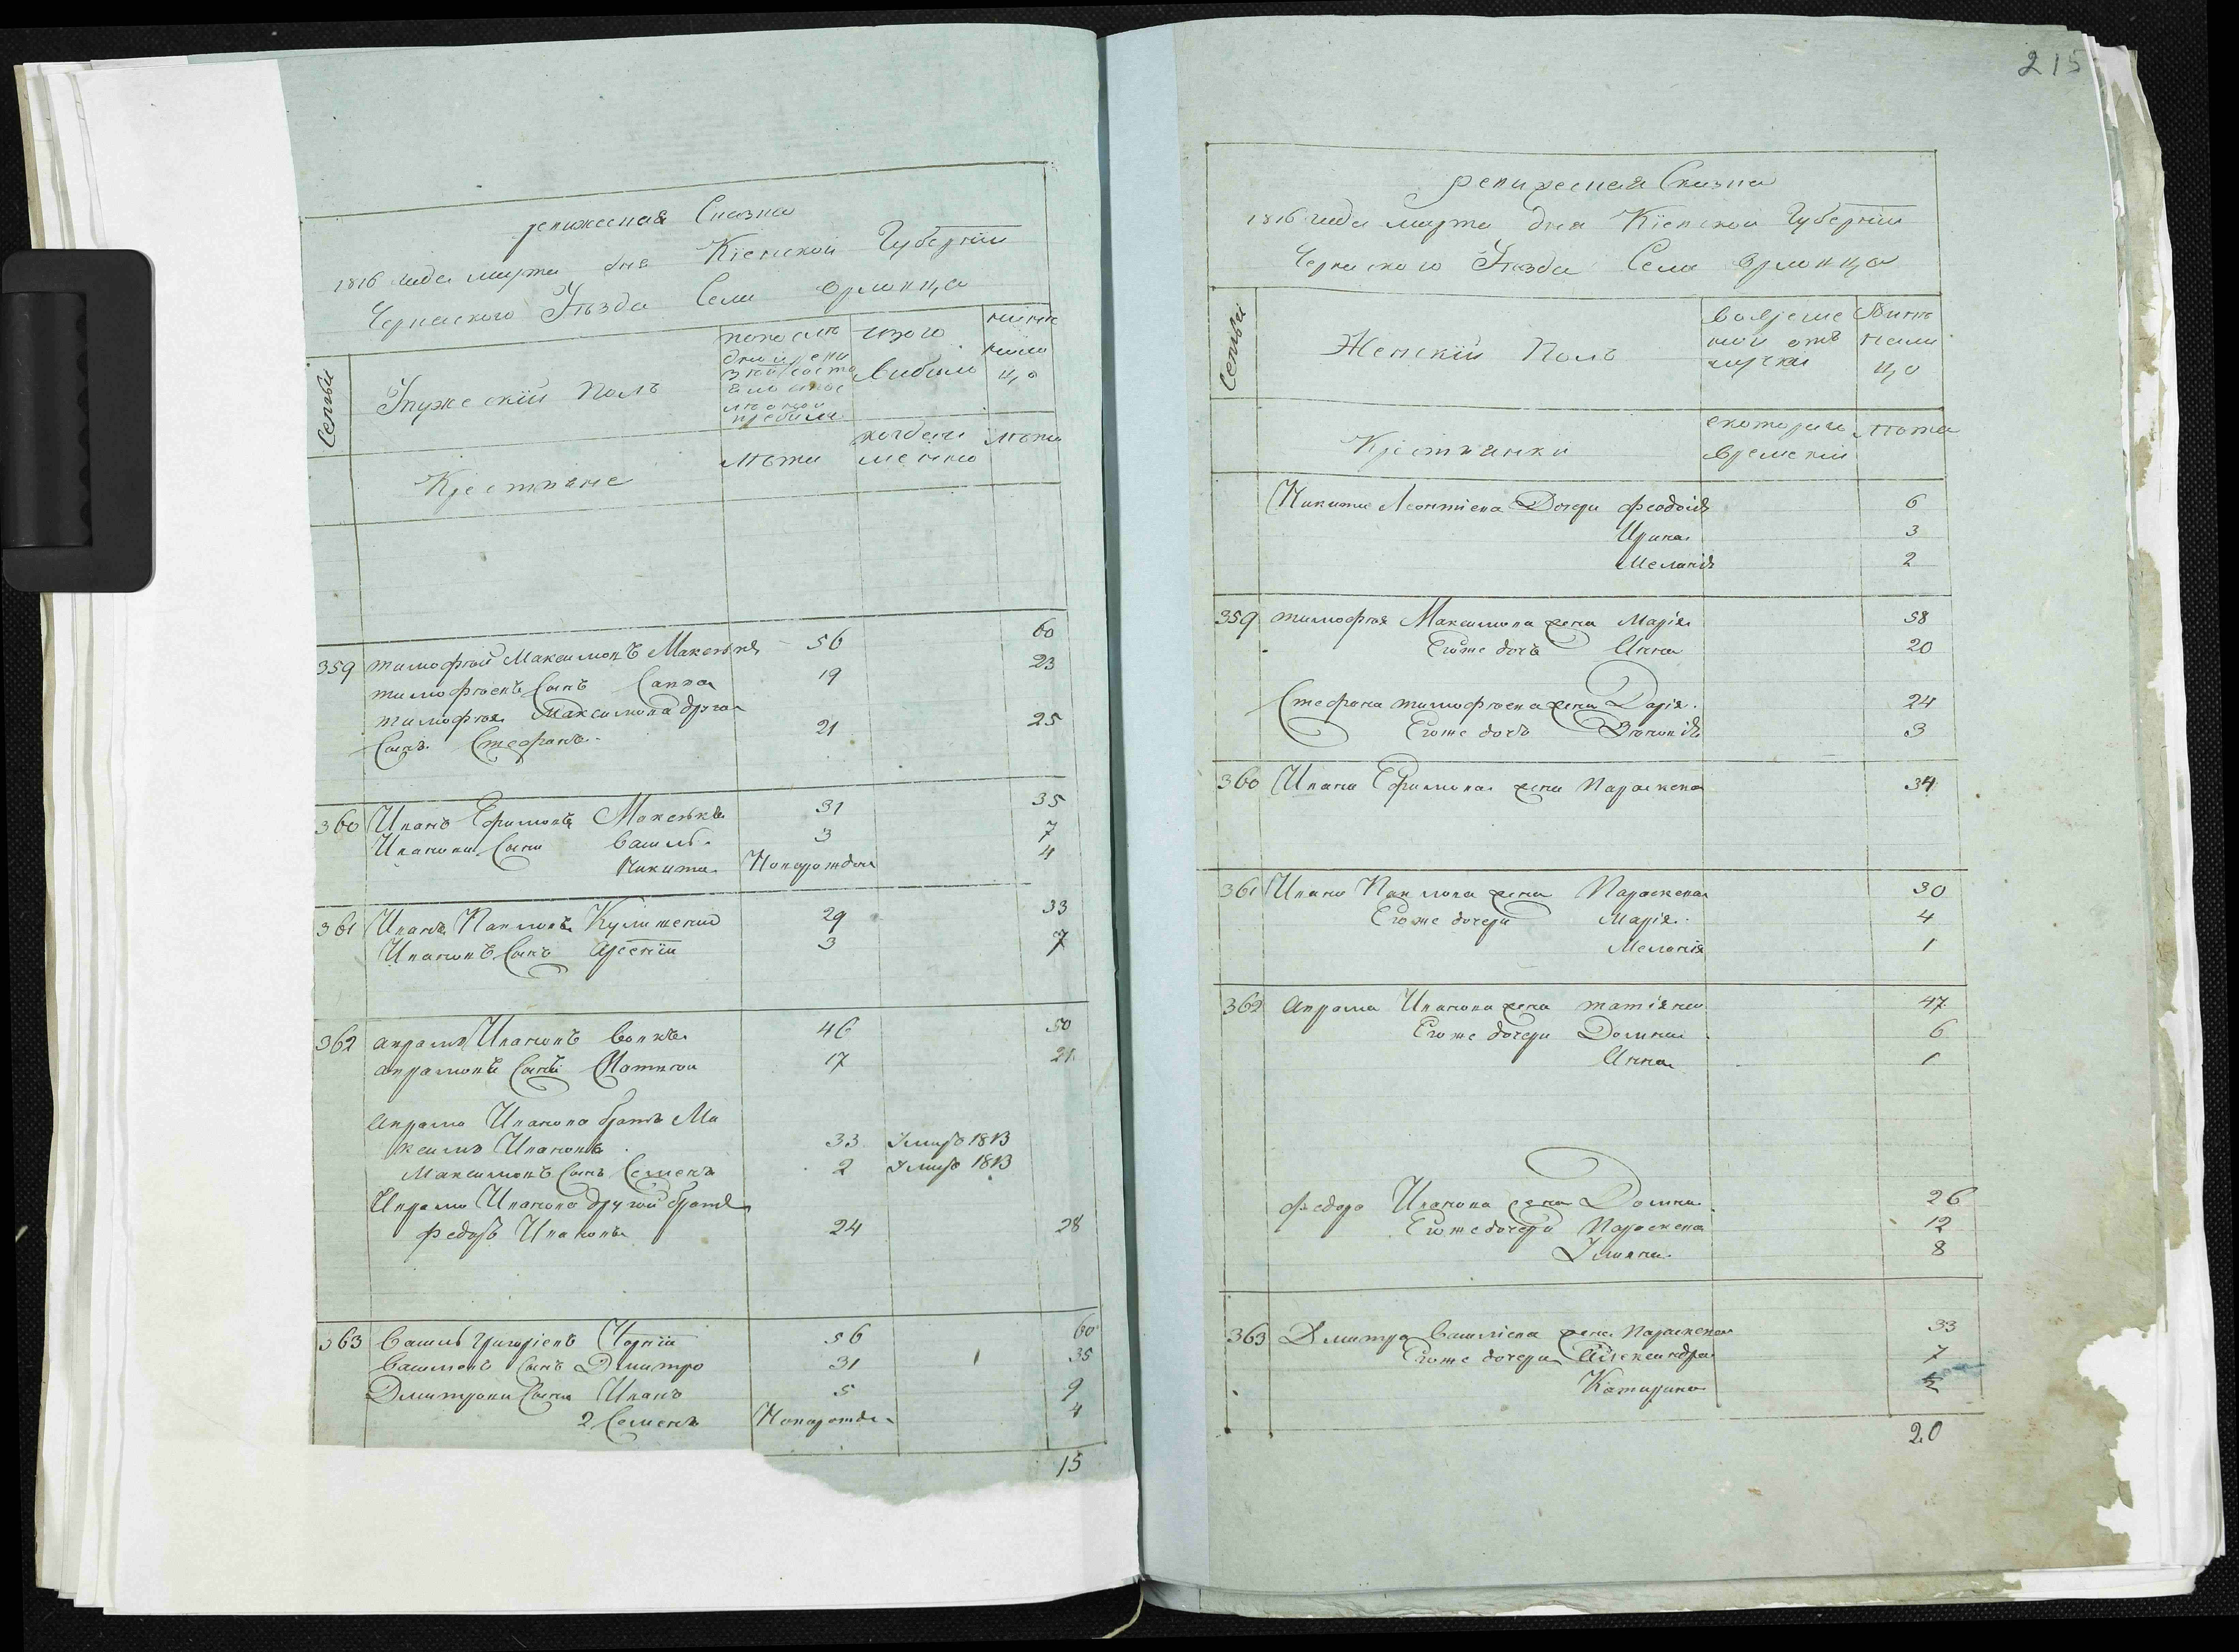 ревижеская Сказка
1816 года марта дня Кіевской Губерніи
Черкаского Уѣзда Села Орловца
Семьи
Мужескій Полъ
по последней ревизіи состояло и после оной прибыло
изъ того выбило
ныне на лицо
Крестяне
лѣта
когда именно
лѣта
359 тимофѣй Максимовъ Максюкъ 56 60
тимофѣевъ Сынъ Савва 19 23
тимофѣя Максимова другой
Сынъ Стефанъ 21 25
360 Иванъ Ефимовъ 31 35
Ивановы Сыны Василь 3 7
Никита Новорожден 4
361 Иванъ Павловъ 29 33
Ивановъ Сынъ Арсеній 3 7
362 аврамъ Ивановъ Вовкъ 46 50
аврамовъ Сынъ Матвѣй 17 21
Аврама Иванова братъ Ма
ксимъ Ивановъ 33 Умиръ 1813
Максимовъ Сынъ Семенъ 2 Умиръ 1813
Аврама Иванова другой братъ
федоръ Ивановъ 24 28
363 Василь Григоріевъ Чорній 56 60
Василювъ Сынъ Дмитро 31 35
Дмитровы Сыны Иванъ 5 9
2 Семенъ Новорожден 4
15
215
ревижеская Сказка
1816 года марта дня Кіевской Губерніи
Черкаского Уѣзда Села Орловца
Семьи
Женскій Полъ
Во временной отлучки
Нинѣ на лицо
Крестянки
с котораго времени
лѣта
Никиты Леонтіева Дочери феодосія 6
Ирина 3
Меланія 2
359 тимофѣя Максимова жена Марія 58
Егоже дочь Анна 20
Стефана тимофѣева жена Дарія 24
Егоже дочь Зѣновія 3
360 Ивана Ефимова жена Параскева 34
361 Ивана Павлова жена Параскева 30
Егоже дочери Марія 4
Меланія 1
362 Аврама Иванова жена татіяна 47
Егоже дочери Домна 6
Анна 1
федора Иванова жена Домна 26
Егоже дочери Параскева 12
Уляна 8
363 Дмитра Василіева жена Параскева 33
Егоже дочери Александра 7
Катирина
20